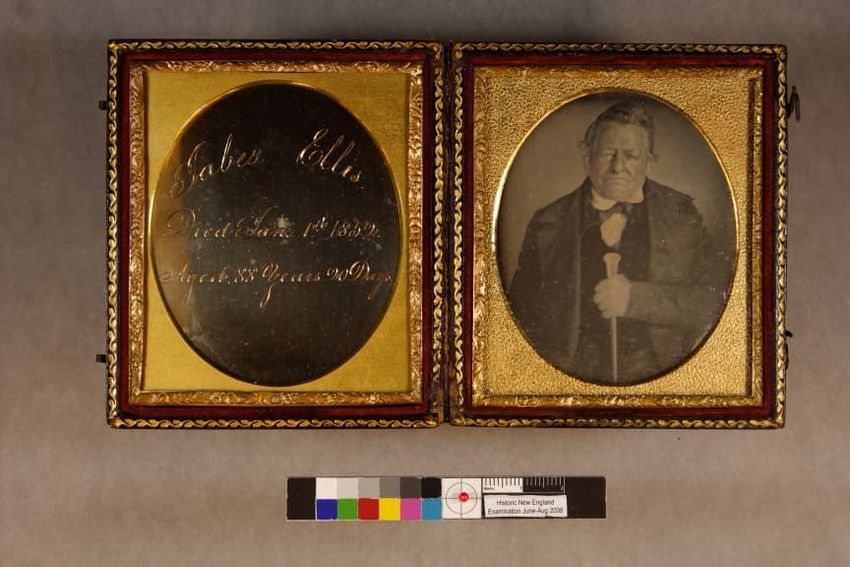 Jabez Ellis.
Died Jan. 1st 1852.
Aged 88 Years 20 Days.
Historic New England
Examination June-Aug 2008